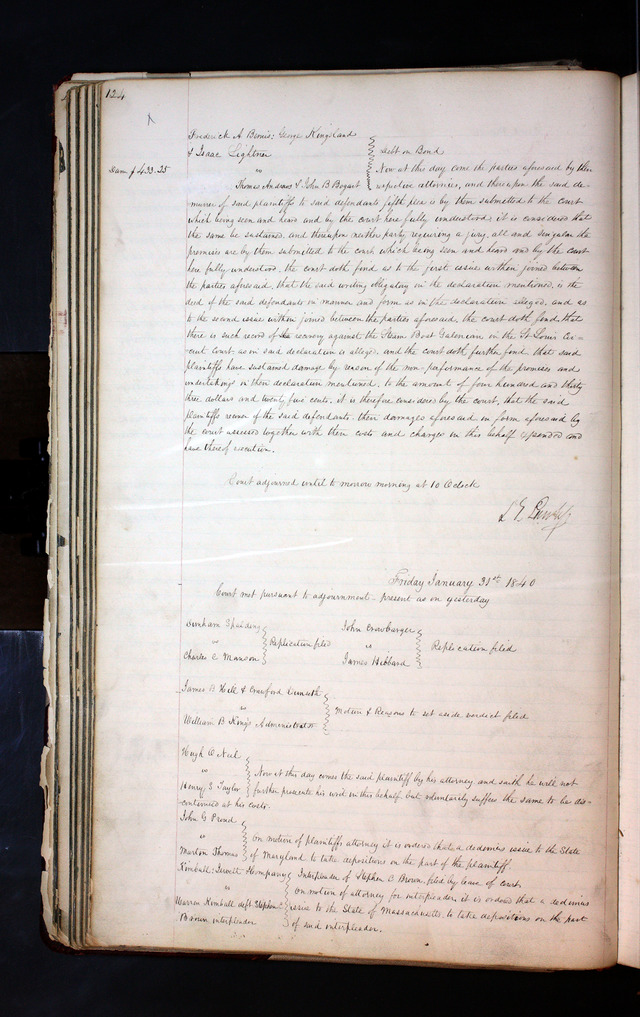 124
Frederick A Bemis; George Kingsland
& Isaac Lightner
Debt on Bond
Dam $433.25
vs
Now at this day come the parties aforesaid by their
Thomas Andrews & John B Bogart
respective attornies, and thereupon the said de-
murrer of said plaintiffs to said defendants fifth plea is by them submitted to the court
which being seen and heard and by the court here fully understood; it is considered that
the same be sustained, and thereupon neither party requiring a jury, all and singular the
premises are by them submitted to the court which being seen and heard and by the court
here fully understood, the court doth find as to the first issue within joined between
the parties aforesaid, that the said writing obligatory in the declaration mentioned, is the
deed of the said defendants in manner and form as in the declaration alleged, and as
to the second issue within joined between the parties aforesaid, the court doth find that
there is such record of the recovery against the Steam Boat Galenian in the St Louis Cir-
cuit court as in said declaration is alleged and the court doth further find, that said
plaintiffs have sustained damage by reason of the non-performance of the promises and
undertakings in their declaration mentioned, to the amount of four hundred and thirty
three dollars and twenty five cents, it is therefore considered by the court, that the said
plaintiffs recover of the said defendants, their damages aforesaid in form aforesaid by
the court assessed together with their costs and charges in this behalf expended and
have thereof execution.
Court adjourned until to morrow morning at 10 Oclock
Friday January 31st 1840
Court met pursuant to adjournment – present as on yesterday
Burnham Spalding
vs
Charles C Manson
Replication filed
John Crowburger
vs
James Hibbard
Replication filed
James B Hill & Crawford
vs
William B King's Administrator
Motion & Reasons to set aside verdict filed
Hugh O Neil
vs
Now at this day comes the said plaintiff by his attorney, and saith he will not
Henry S Taylor
further prosecute his writ in this behalf, but voluntarily suffers the same to be dis-
continued at his costs.
John G Proud
vs
On motion of plaintiffs attorney it is ordered that a dedimus issue to the State
Marlon Thomas
of Maryland to take depositions on the part of the plaintiff.
Kimball; Jewett & company
Interpleader of Stephen B Brown, filed by leave of court
vs
On motion of attorney for interpleader it is ordered that a dedimus
Warren Kimball deft Stephen B
issue to the State of Massachusetts to take depositions on the part
Brown interpleader
of said interpleader.